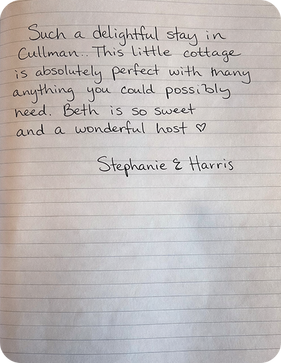 Such a delightful stay in
Cullman.. This little cottage
is absolutely perfect with many
anything you could possibly
need. Beth is so sweet
and a wonderful host ♡
Stephanie & Harris